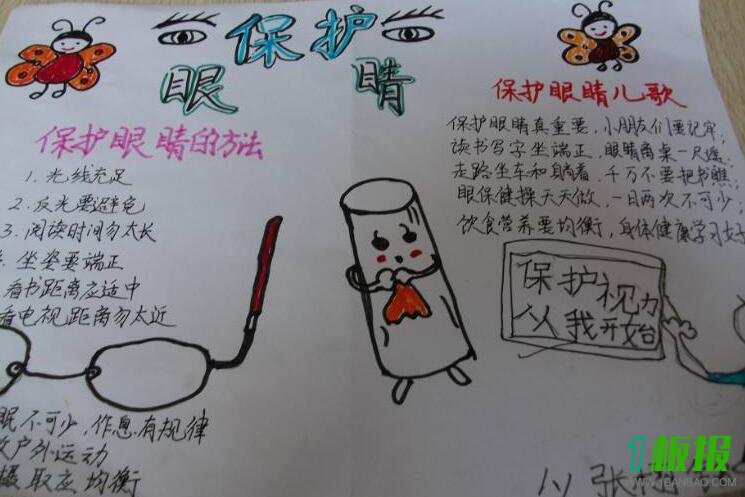 保护
眼睛
保护眼睛的方法
1. 光线充足
2. 反光要避免
3. 阅读时间勿太长
坐姿要端正
看书距离应适中
看电视距离勿太近
眠不可少，作息有规律
户外运动
摄取应均衡
保护眼睛儿歌
保护眼睛真重要，小朋友们要记牢；
读书写字坐端正，眼睛离桌一尺遥；
走路坐车和躺着，千万不要把书瞧；
眼保健操天天做，一日两次不可少；
饮食营养要均衡，身体健康学习好
保护视力
从我开始
张
1板报
WWW.1BANBAO.COM